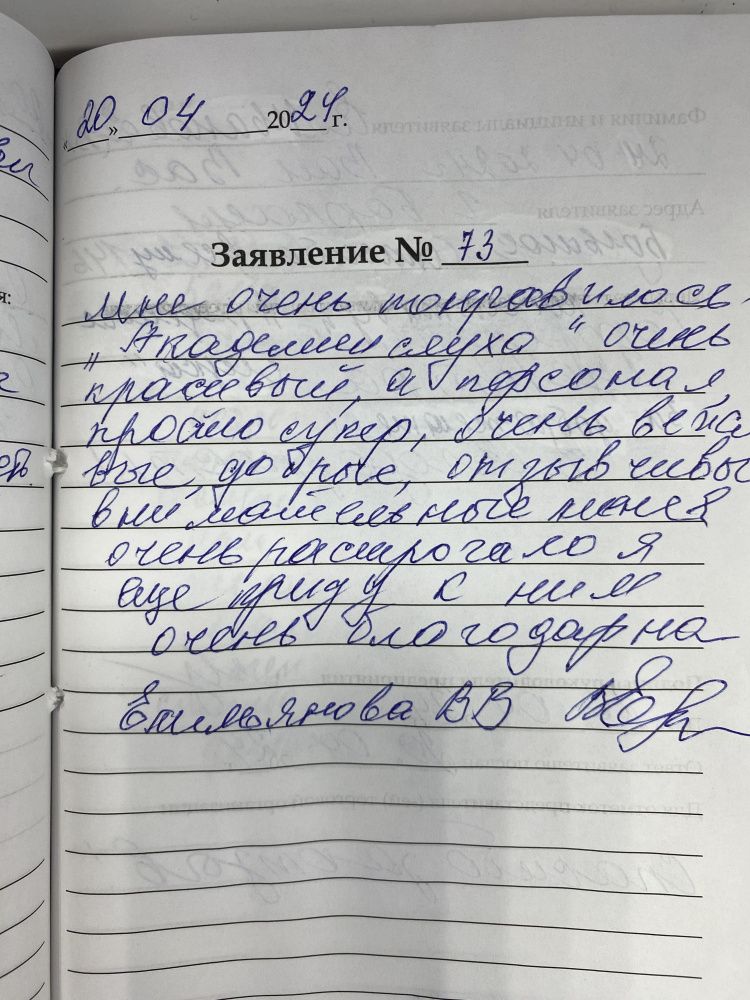 «20» 04 2024 г.
Заявление № 73
Мне очень понравилось
„Академии слуха" очень
красивый, а персонал
просто супер, очень вежл
вые, добрые, отзывчивы
внимательные меня
очень растрогало я
еще приду к ним
очень благодарна
Емильянова ВВ
я: